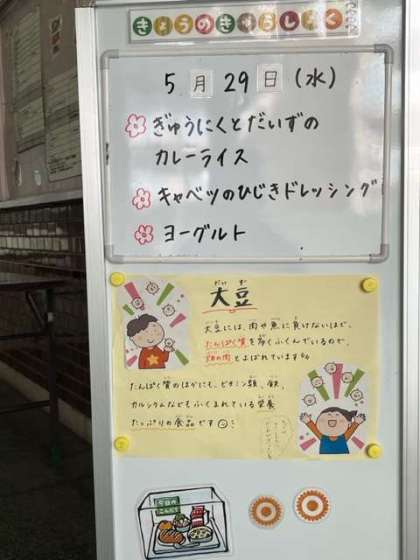 きょうのきゅうしょく
5月29日(水)
ぎゅうにくとだいずの
カレーライス
キャベツのひじきドレッシング
ヨーグルト
だいず
大豆
大豆には、肉や魚に負けないほど、
たんぱく質を多くふくんでいるので、
畑の肉とよばれています
たんぱく質のほかにも、ビタミン類、鉄、
カルシウムなどもふくまれている栄養
たっぷりの食品です
今日の
こんだて